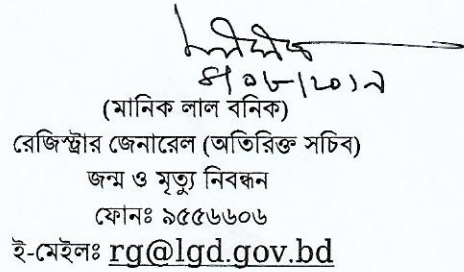 (মানিক লাল বনিক)
রেজিস্ট্রার জেনারেল (অতিরিক্ত সচিব)
জন্ম ও মৃত্যু নিবন্ধন
ফোনঃ ৯৫৫৬৬০৬
ই-মেইলঃ rg@lgd.gov.bd